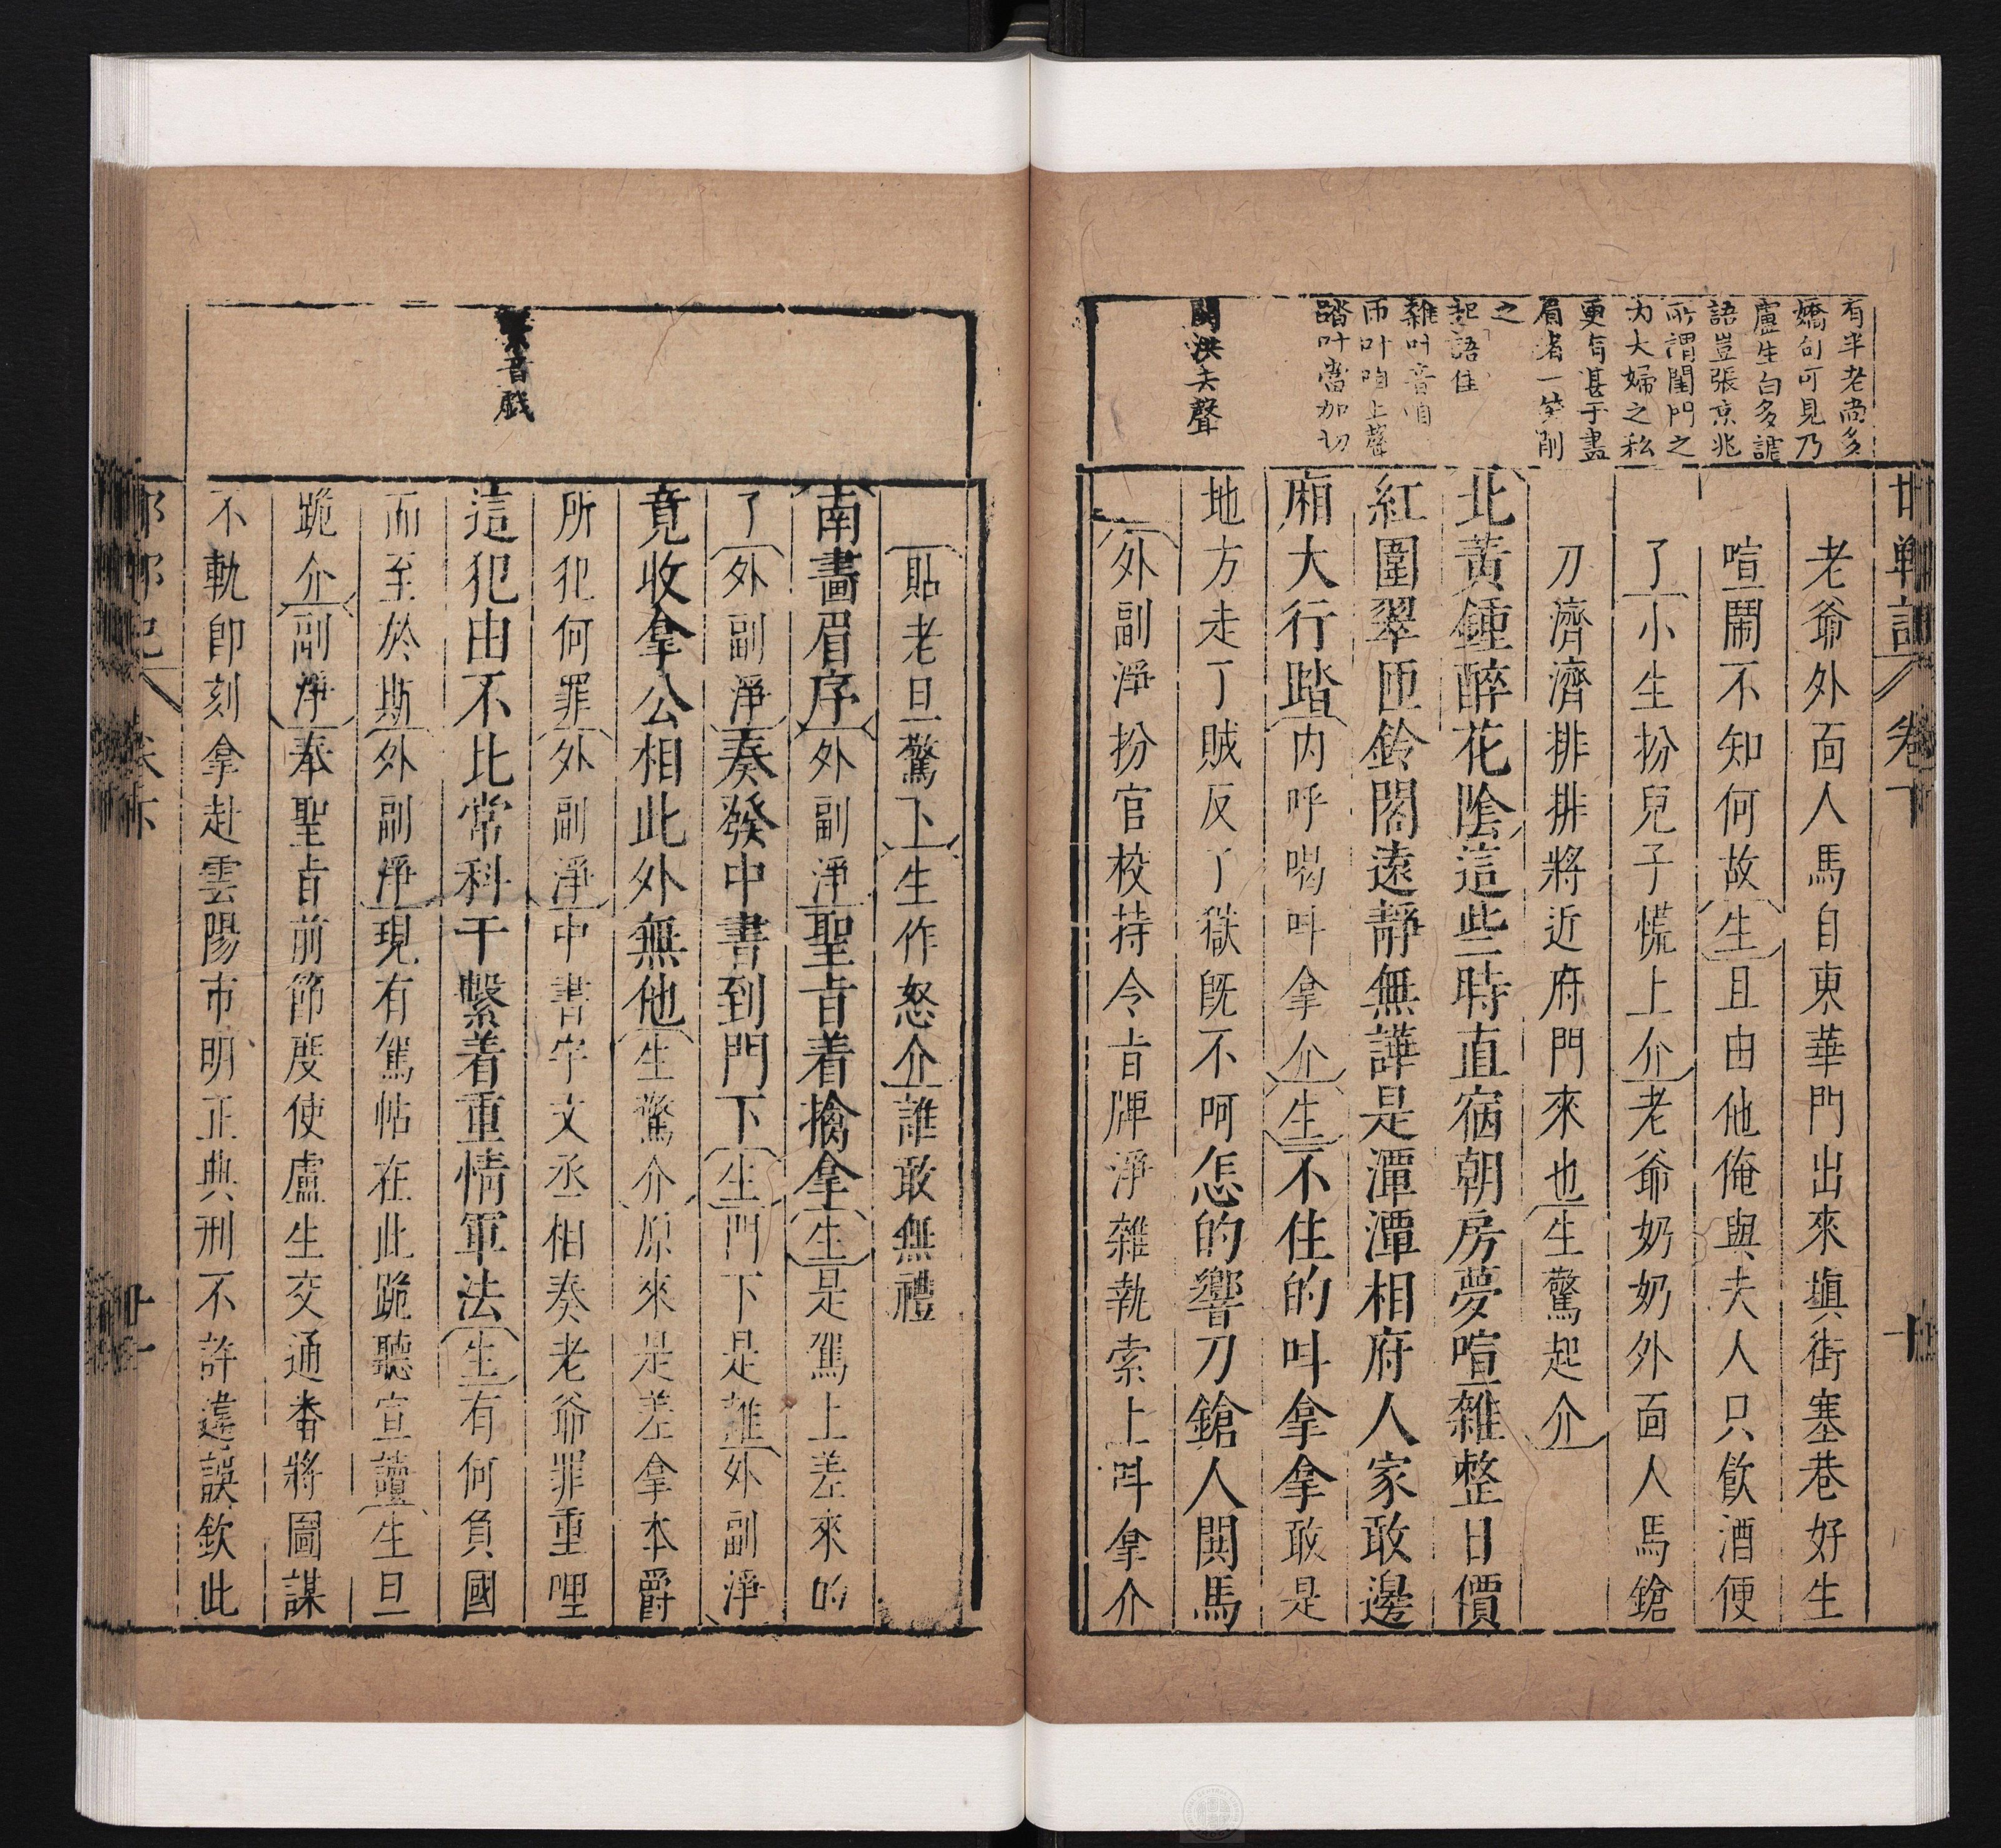 有半老尚多
嬌句可見乃
盧生白多謔
語豈張京兆
所謂閨門之
內大婦之私
更有甚于畫
眉者一笑削
之
起語佳
雜叶音咱
匝叶咱上聲
踏叶當加切
鬨洪去聲
邯鄲記 卷下
老爺外面人馬自東華門出來塡街塞巷好生
喧鬧不知何故生且由他俺與夫人只飲酒便
了小生扮兒子慌上介老爺奶奶外面人馬鎗
刀濟濟排排將近府門來也生驚起介
北黃鍾醉花陰這些時直宿朝房夢喧雜整日價
紅圍翠匝鈴閣遠靜無譁是潭潭相府人家敢邊
廂大行踏內呼喝呌拿介生不住的呌拿拿敢是
地方走了賊反了獄旣不呵怎的響刀鎗人鬨馬
外副淨扮官校持令旨牌淨雜執索上呌拿介
音戲
貼老旦驚下生作怒介誰敢無禮
南畵眉序外副淨聖旨着擒拿生是駕上差來的
了外副淨奏發中書到門下生門下是誰外副淨
竟收拿公相此外無他生驚介原來是差拿本爵
所犯何罪外副淨中書宇文丞相奏老爺罪重哩
這犯由不比常科干繫着重情軍法生有何負國
而至於斯外副淨現有駕帖在此跪聽宣讀生旦
跪介副淨奉聖旨前節度使盧生交通番將圖謀
不軌卽刻拿赴雲陽市明正典刑不許違誤欽此